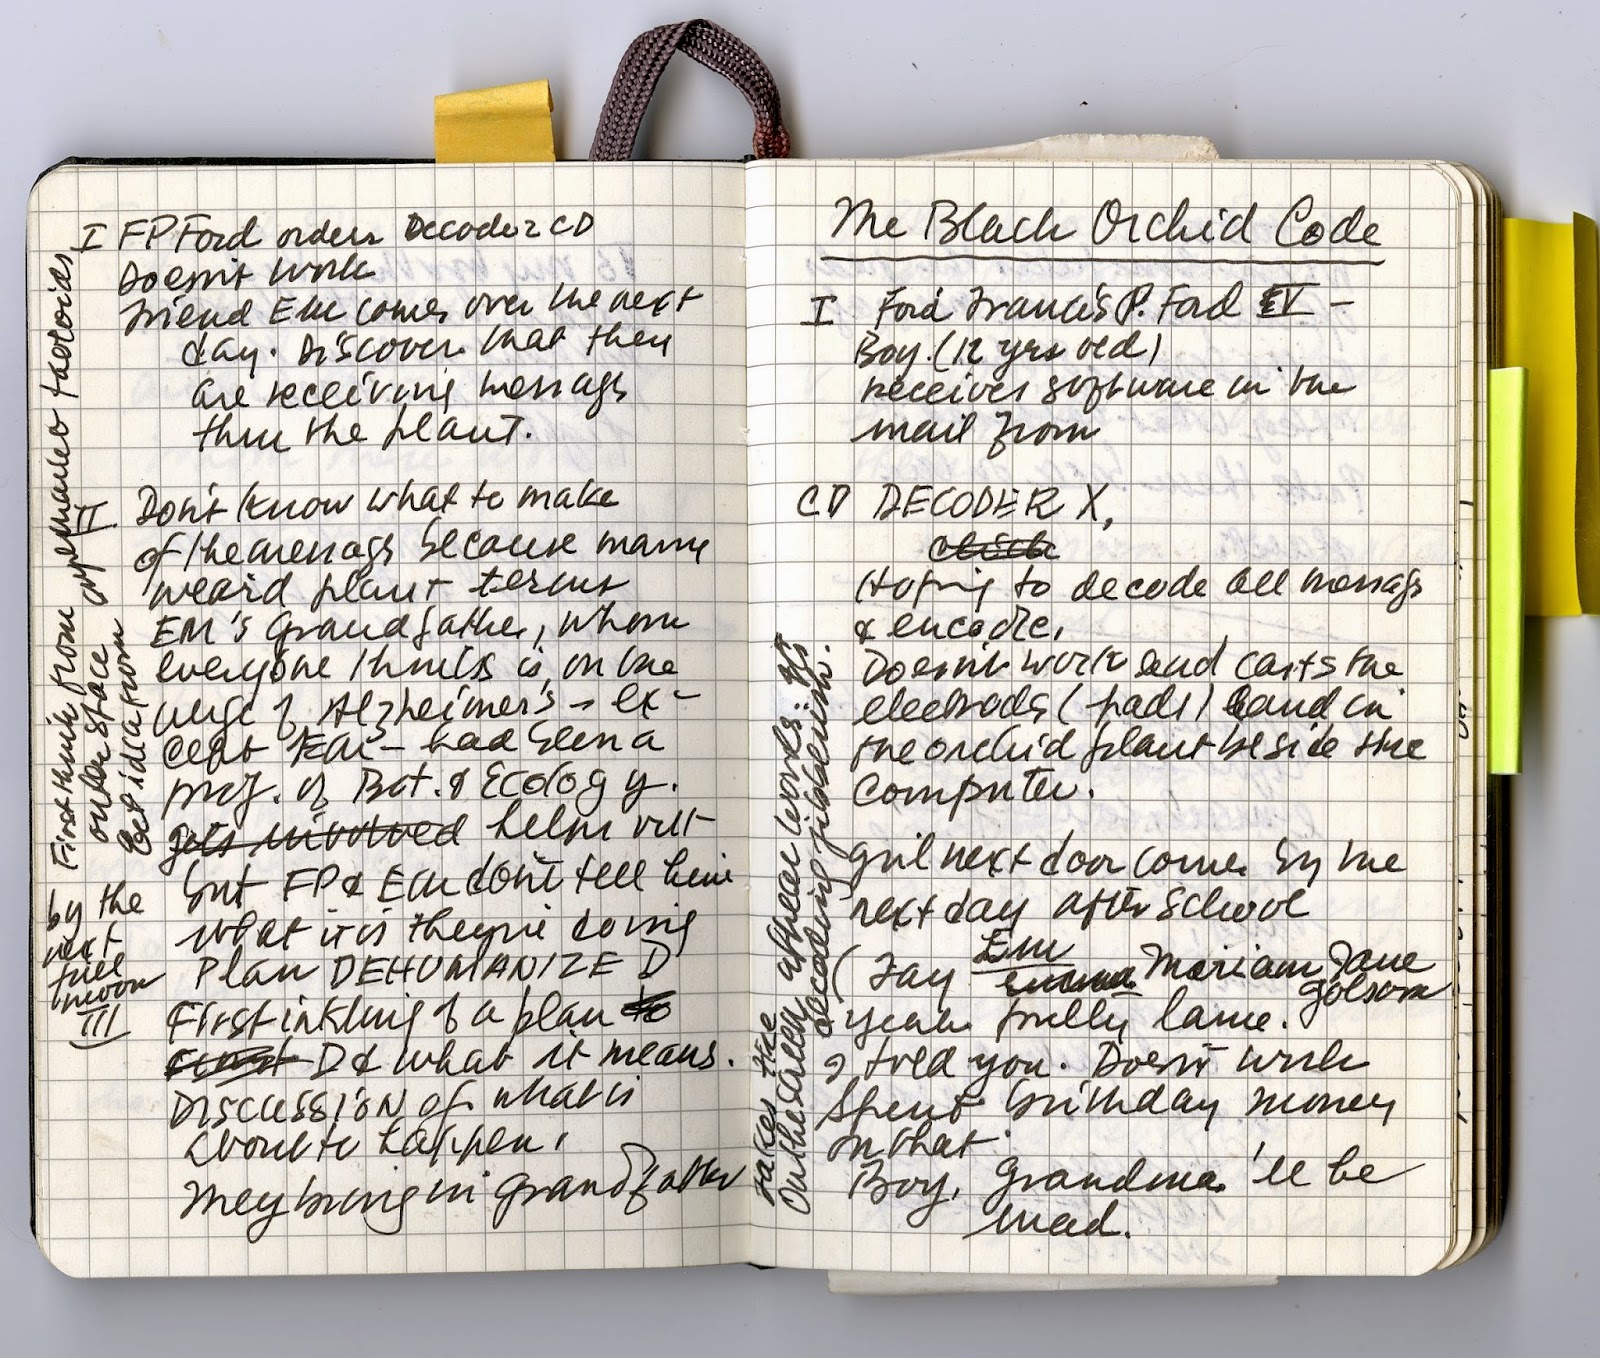 I FP Ford orders Decoder CD
Doesn't work
Friend Em comes over the next
day. Discover that they
are receiving messags
thru the plant.
II Don't know what to make
of the messags because many
weard plant terms
EM's Grandfather, whom
everyone thinks is on the
verge of Alzheimer's – ex-
cept Em – had been a
prof. of Bot. & Ecology.
gets involved helm out
but FP & Em don't tell him
what it is they're doing
Plan DEHUMANIZE D
III First inkling of a plan to
D & what it means.
Discussion of what is
about to happen.
They bring in Grandfather
First think from
outer space
by the
next
full
moon
The Black Orchid Code
I Ford Francis P. Ford IV –
Boy. (12 yrs old)
receives software in the
mail from
CD DECODER X,
Hoping to decode all messags
& encode.
Doesn't work and casts the
electrods (pads) band in
the orchid plant beside the
computer.
Girl next door comes by the
next day after school
(Jay Em Emma Mariam Jane
Golsom
yeah pretty lame.
I told you. Doesn't work
Spent birthday money
on that.
Boy, Grandma'll be
mad.
takes the
On the screen after all works: It's
decoding jibberish.